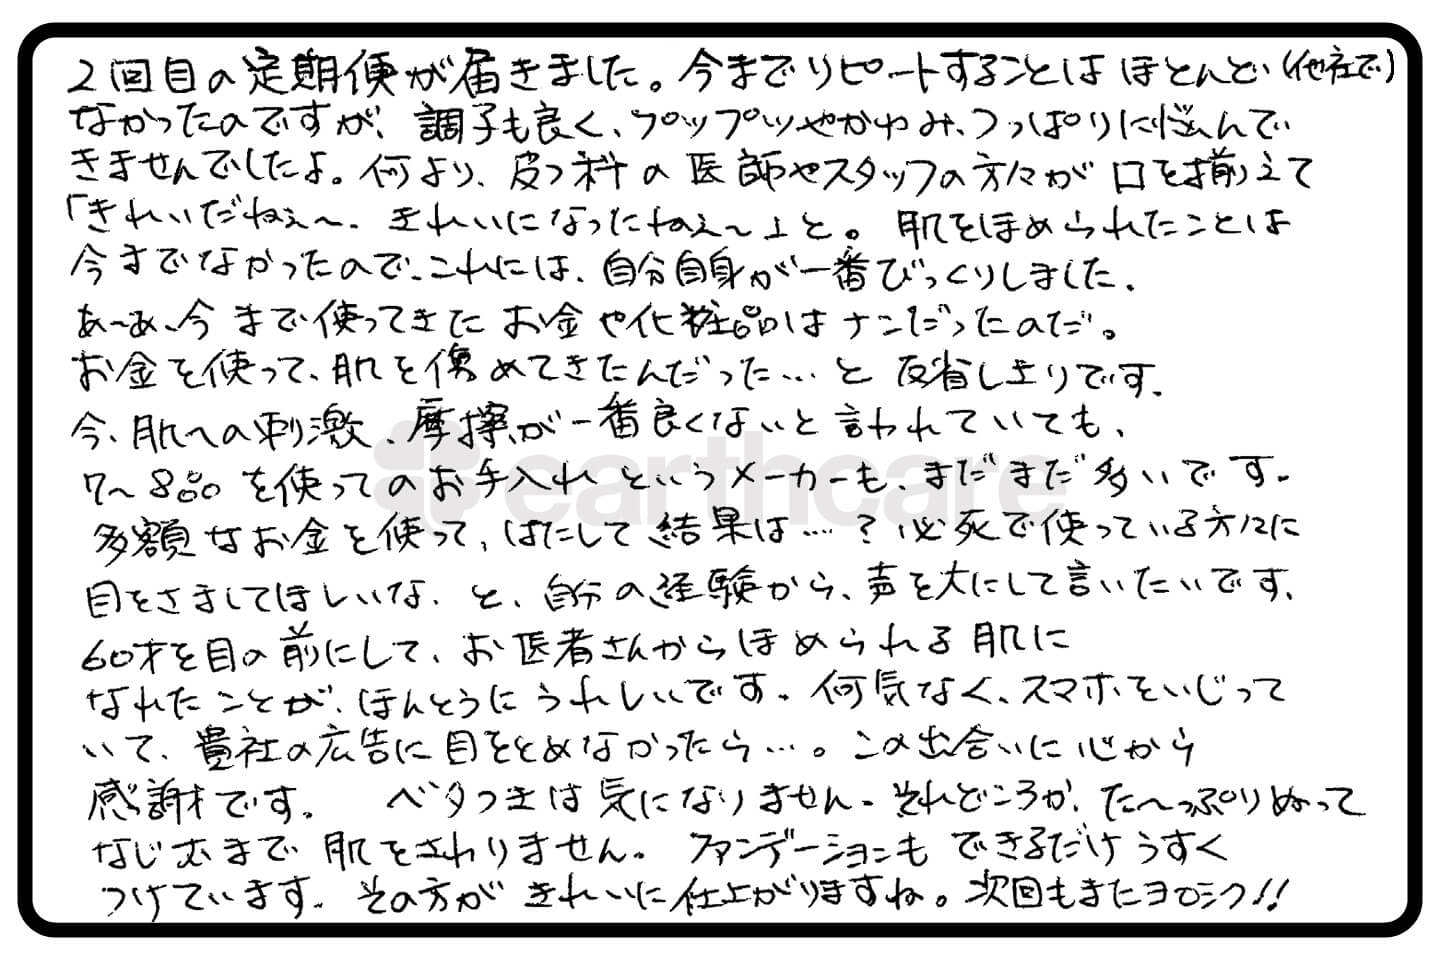 2回目の定期便が届きました。今までリピートすることは ほとんど(他社で)
なかったのですが、調子も良く、プップツやかゆみ、つっぱりに悩んで
きませんでしたよ。何より、皮フ科の医師やスタッフの方々が口を揃えて
「きれいだねぇ〜、きれいになったねぇ〜」と。肌をほめられたことは
今までなかったので、これには、自分自身が一番びっくりしました。
あ〜あ、今まで使ってきたお金や化粧品はナンだったのだ。
お金を使って、肌を傷めてきたんだった…と反省しきりです。
今、肌への刺激、摩擦が一番良くないと言われていても、
earthcare
7〜8品を使ってのお手入れというメーカーも、まだまだ多いです。
多額なお金を使って、はたして結果は…?必死で使っている方々に
目をさましてほしいな、と、自分の経験から、声を大にして言いたいです。
60才を目の前にして、お医者さんからほめられる肌に
なれたことが、ほんとうにうれしいです。何気なく、スマホをいじって
いて、貴社の広告に目をとめなかったら…。この出合いに心から
感謝です。 ベタつきは気になりません。それどころか、た〜っぷりぬって
なじむまで肌をさわりません。ファンデーションもできるだけうすく
つけています。その方がきれいに仕上がりますね。次回もまたヨロシク!!